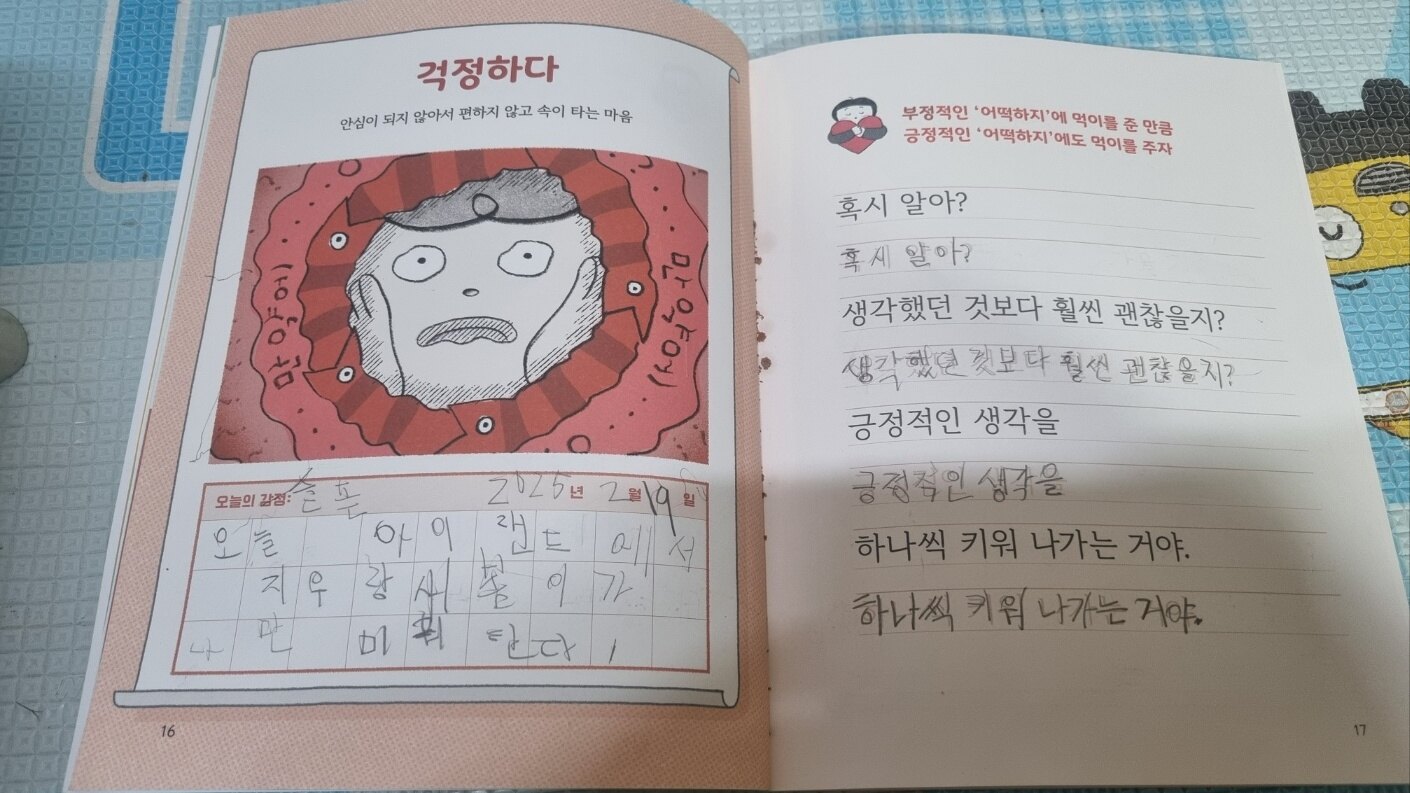 걱정하다
안심이 되지 않아서 편하지 않고 속이 타는 마음
만약에
시무룩
오늘의 감정: 슬픔 2025년 2월 19일
오늘 아이랜드에서
지우랑 새봄이가
나만 미워한다.
16
부정적인 '어떡하지'에 먹이를 준 만큼
긍정적인 '어떡하지'에도 먹이를 주자
혹시 알아?
혹시 알아?
생각했던 것보다 훨씬 괜찮을지?
생각했던 것보다 훨씬 괜찮을지?
긍정적인 생각을
긍정적인 생각을
하나씩 키워 나가는 거야.
하나씩 키워 나가는 거야.
17